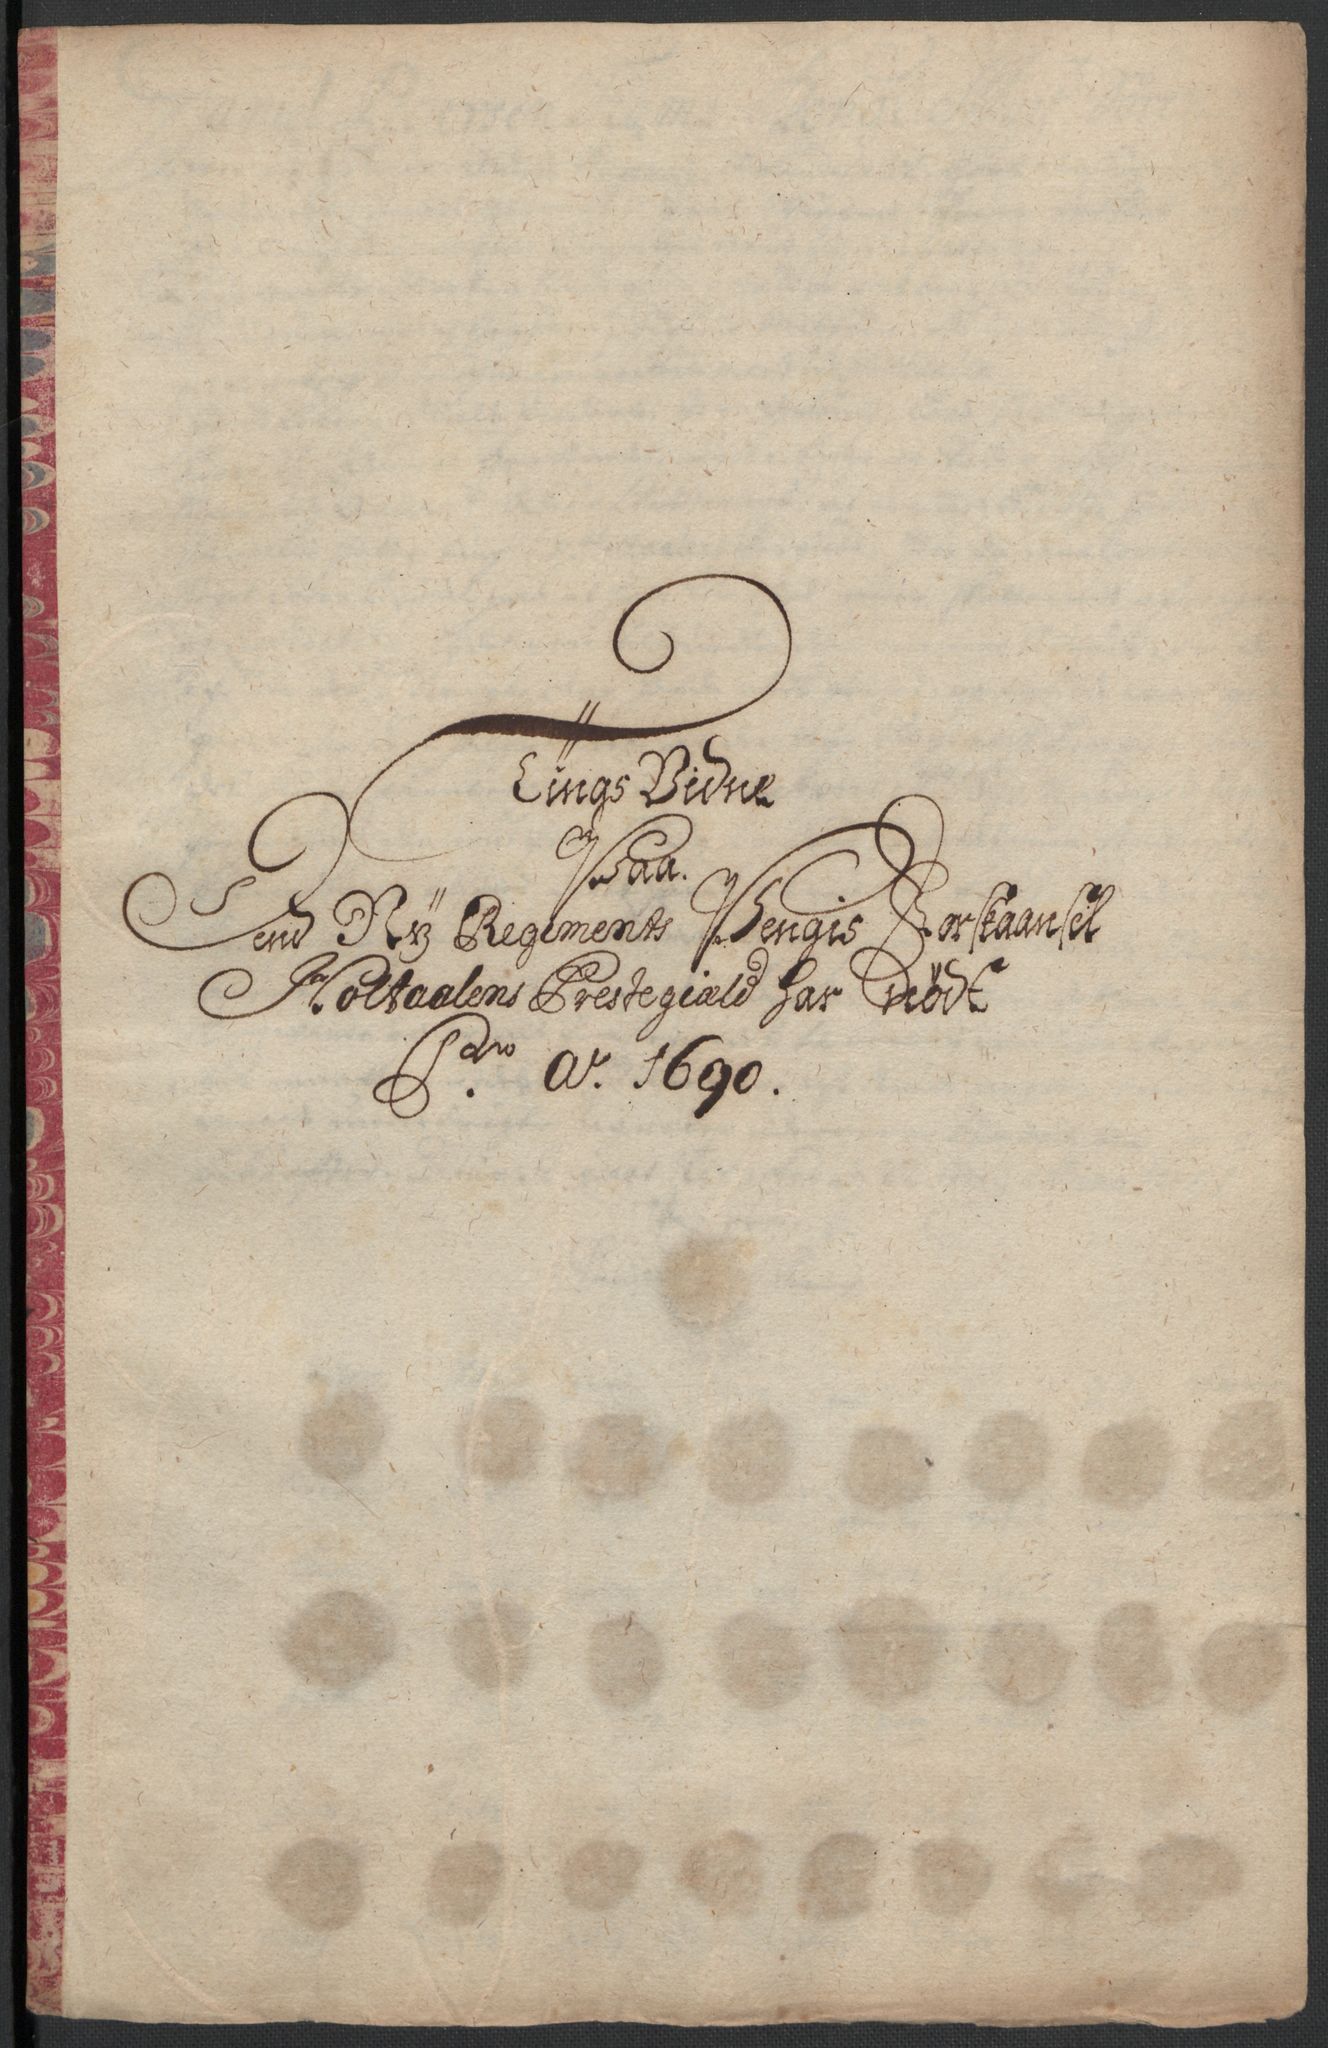 Tings Vidne
Paa.
Dend Ny Regiments Pengis Forskaansel
Holtaalens Prestegiæld har nödt
Pro Ao. 1690.